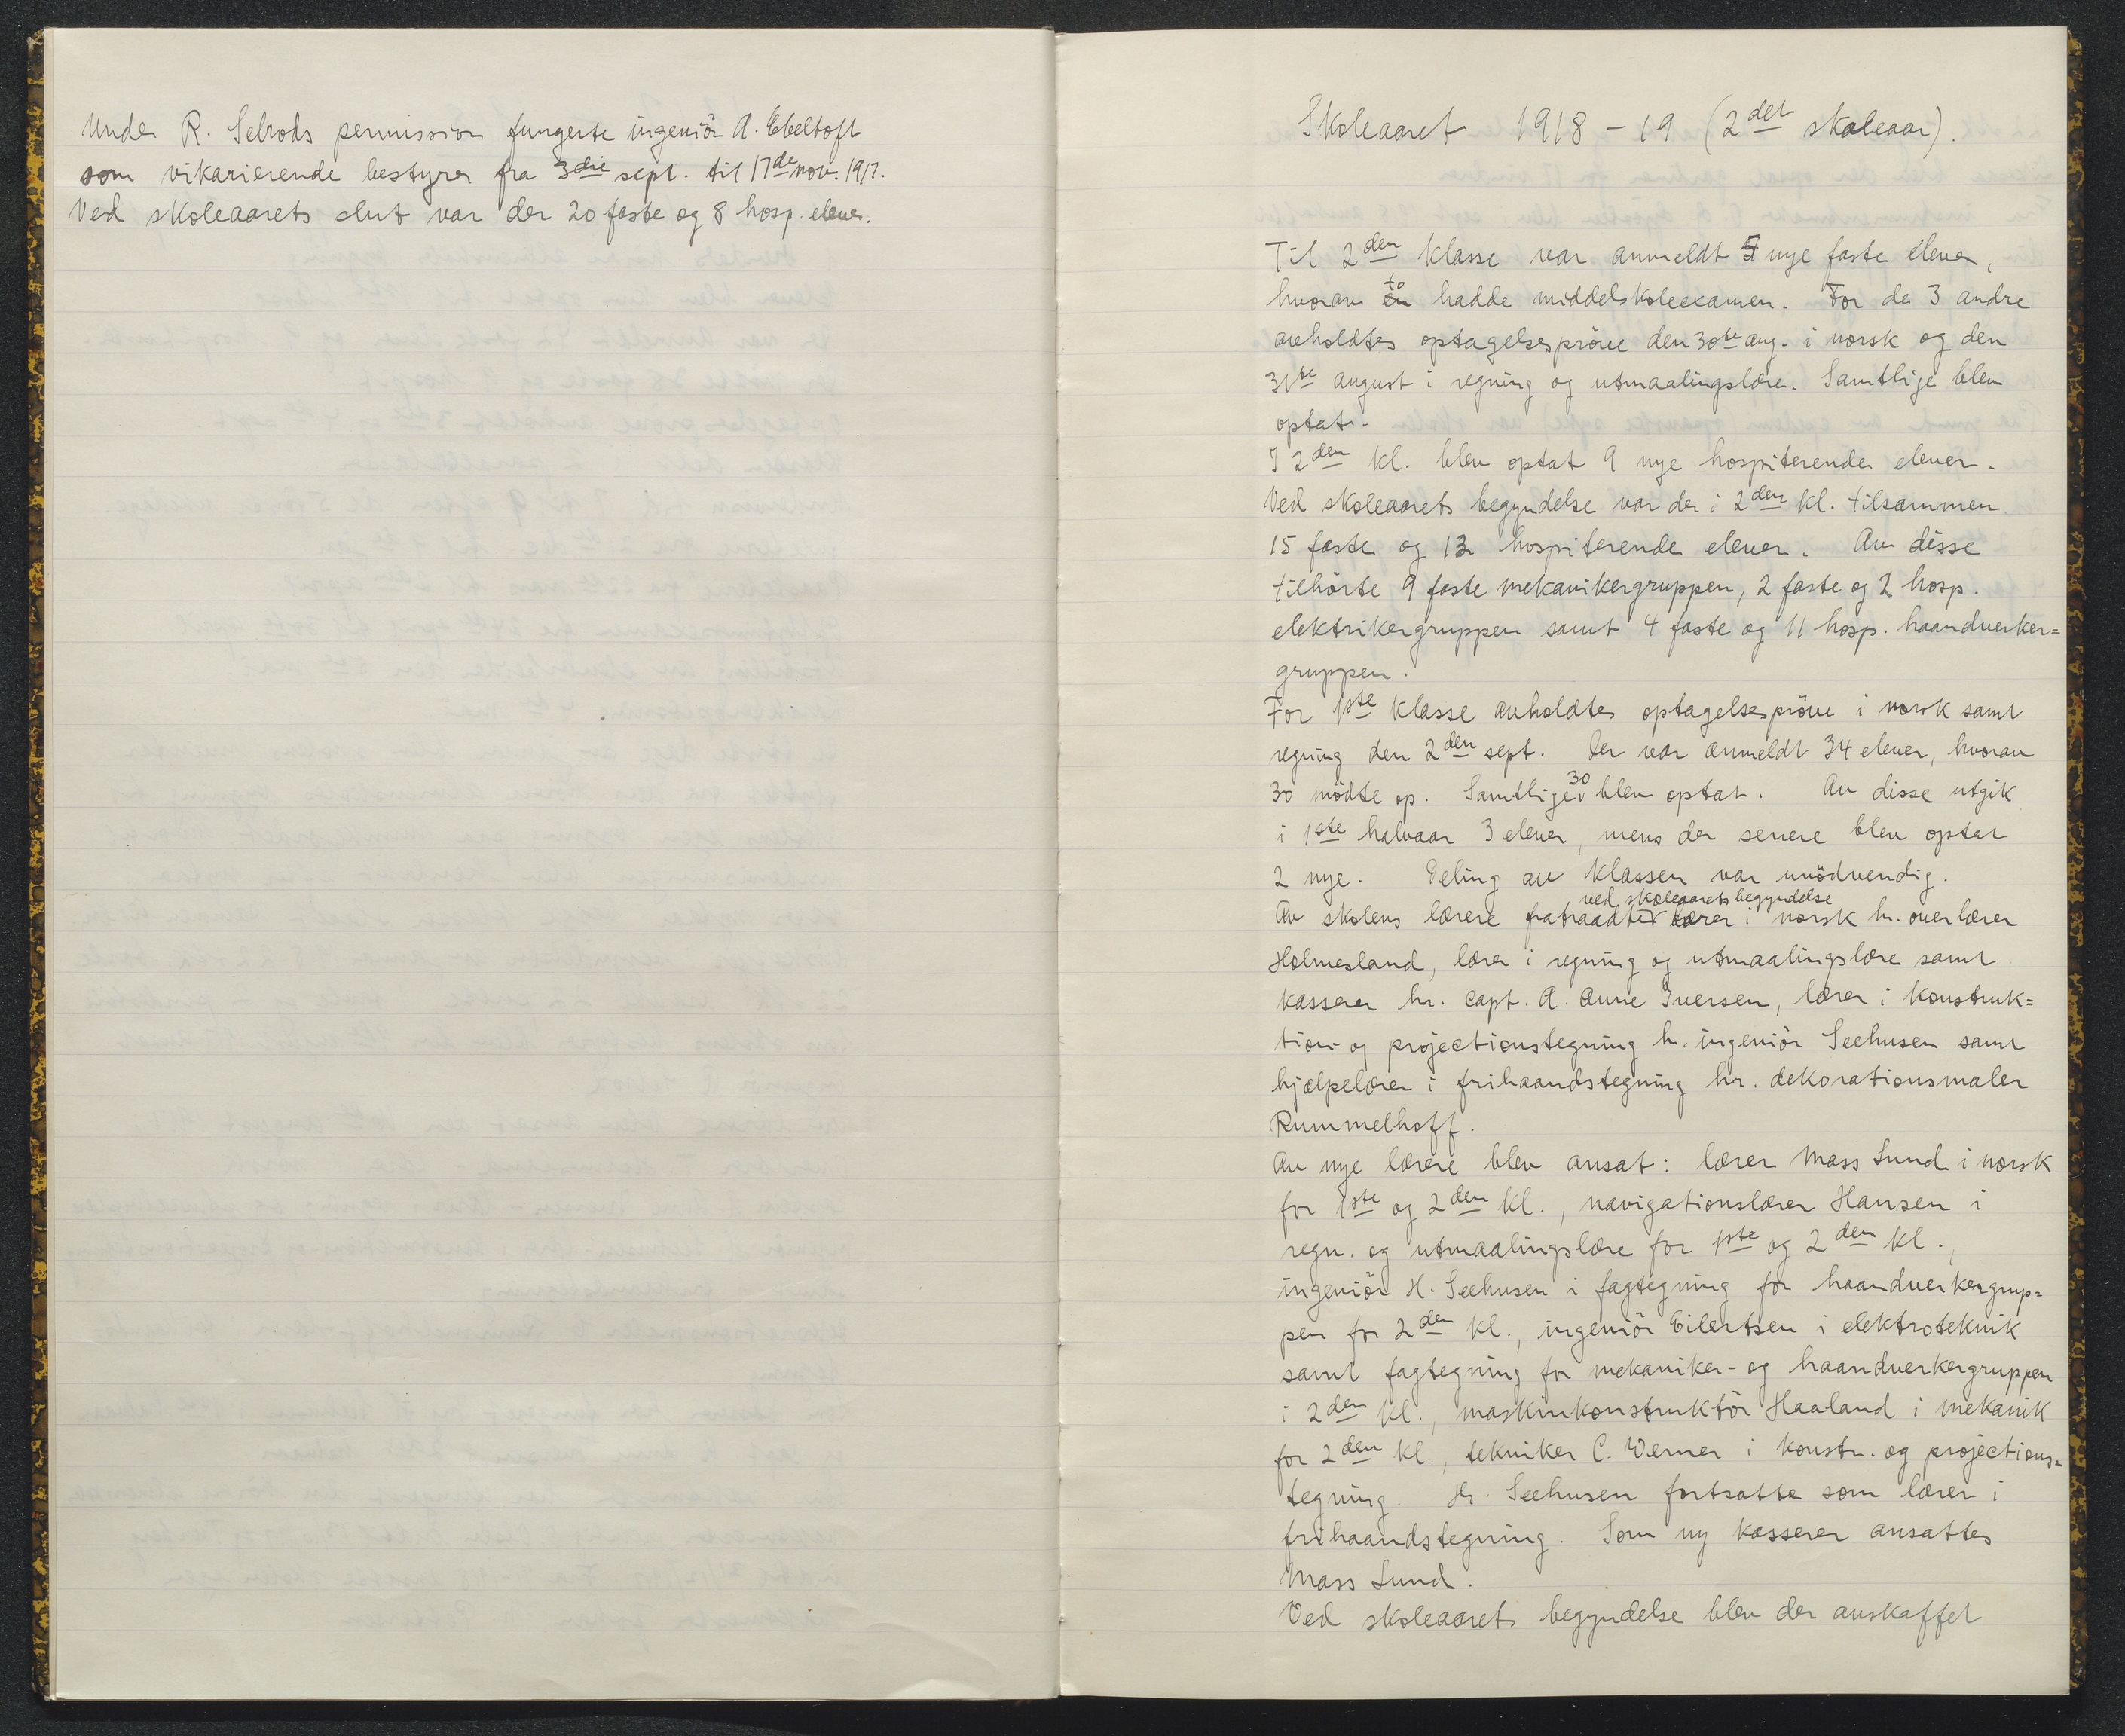 Under R. Selrods permission fungerte ingeniör A. Ebeltoft
som vikarierende bestyrer fra 3die sept. til 17de nov. 1917.
Ved skoleaarets slut var der 20 faste og 8 hosp. elever.
Skoleaaret 1918 - 19 (2det skoleaar).
Til 2den klasse var anmeldt 5 nye faste elever,
hvorav to hadde middelskoleexamen. For de 3 andre
avholdtes optagelsespröve den 30te aug. i norsk og den
31te august i regning og utmaalingslære. Samtlige blev
optat.
I 2den kl. blev optat 9 nye hospiterende elever.
Ved skoleaarets begyndelse var der i 2den kl. tilsammen
15 faste og 13 hospiterende elever. Av disse
tilhörte 9 faste mekanikergruppen, 2 faste og 2 hosp.
elektrikergruppen samt 4 faste og 11 hosp. haandverker=
gruppen.
For 1ste klasse avholdtes optagelsespröve i norsk samt
regning den 2den sept. Der var anmeldt 34 elever, hvorav
30 mödte op. Samtlige 30 blev optat. Av disse utgik
i 1ste halvaar 3 elever, mens der senere blev optat
2 nye. Deling av klassen var unödvendig.
Av skolens lærere fratraadte ved skoleaarets begyndelse lærer i norsk hr. overlærer
Holmesland, lærer i regning og utmaalingslære samt
kasserer hr. capt. A. Aune Iversen, lærer i konstruk=
tion- og projectionstegning hr. ingeniör Seehusen samt
hjælpelærer i frihaandstegning hr. dekorationsmaler
Rummelhoff.
Av nye lærere blev ansat: lærer Mass Lund i norsk
for 1ste og 2den kl., navigationslærer Hansen i
regn. og utmaalingslære for 1ste og 2den kl.,
ingeniör H. Seehusen i fagtegning for haandverkergrup=
pen for 2den kl., ingeniör Eilertsen i elektroteknik
samt fagtegning for mekaniker- og haandverkergruppen
i 2den kl., maskinkonstruktör Haaland i mekanik
for 2den kl., tekniker C. Werner i konstr. og projections=
tegning. Hr. Seehusen fortsatte som lærer i
frihaandstegning. Som ny kasserer ansattes
Mass Lund.
Ved skoleaarets begyndelse blev der anskaffet